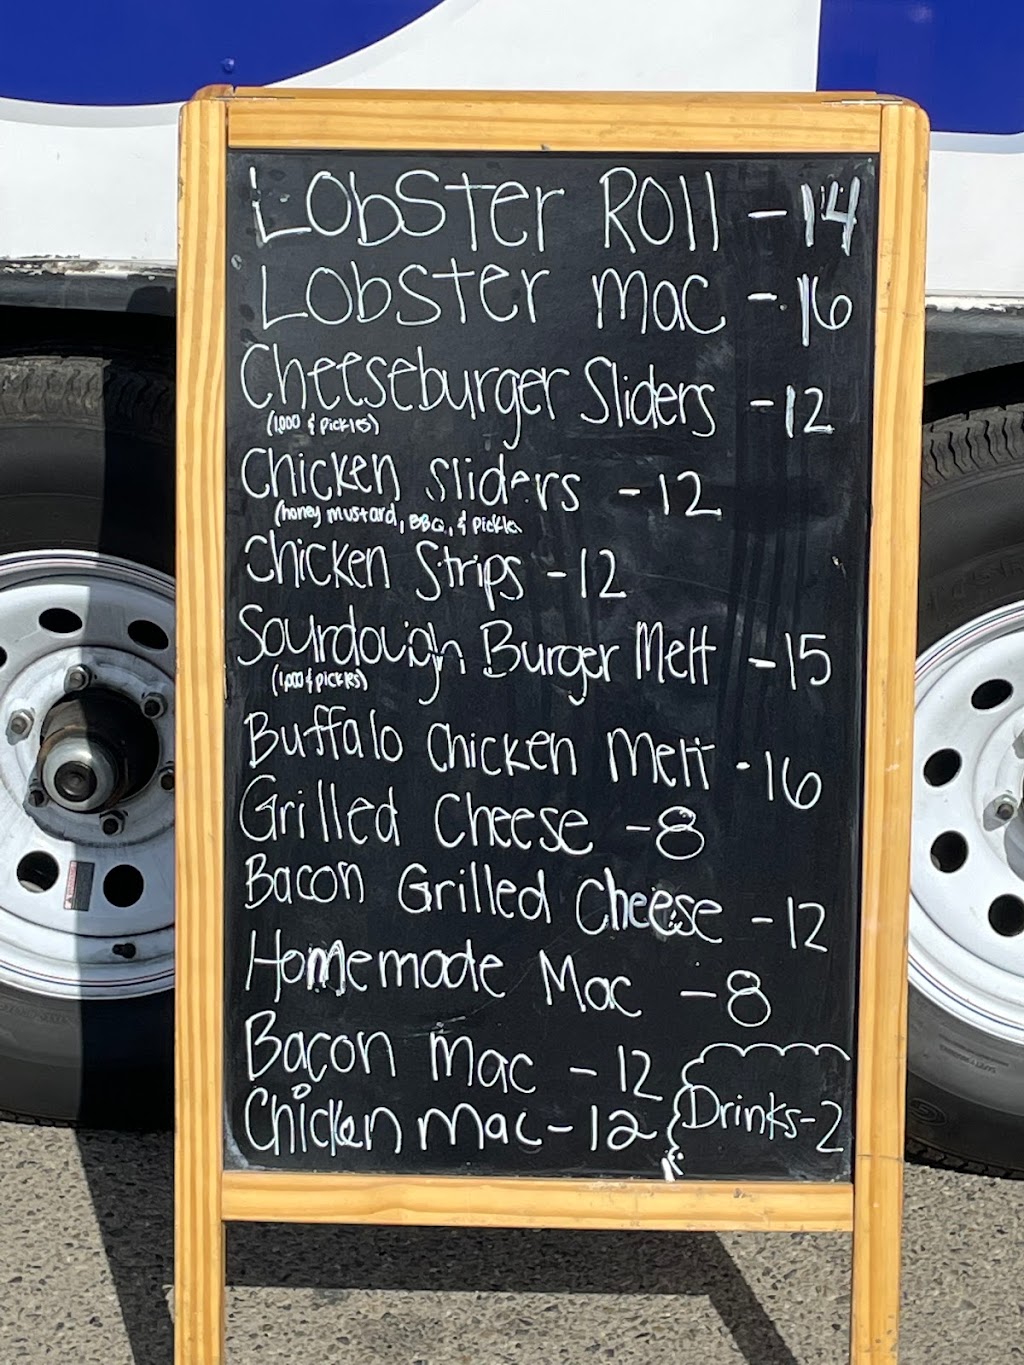 Lobster Roll - 14
Lobster mac - 16
Cheeseburger Sliders - 12
(1,000 & pickles)
Chicken sliders - 12
(honey mustard, BBQ, & pickle
Chicken Strips - 12
Sourdough Burger Melt - 15
(1,000 & pickles)
Buffalo Chicken Melt - 16
Grilled Cheese - 8
Bacon Grilled Cheese - 12
Homemade Mac - 8
Bacon mac - 12
Chicken mac - 12
Drinks - 2